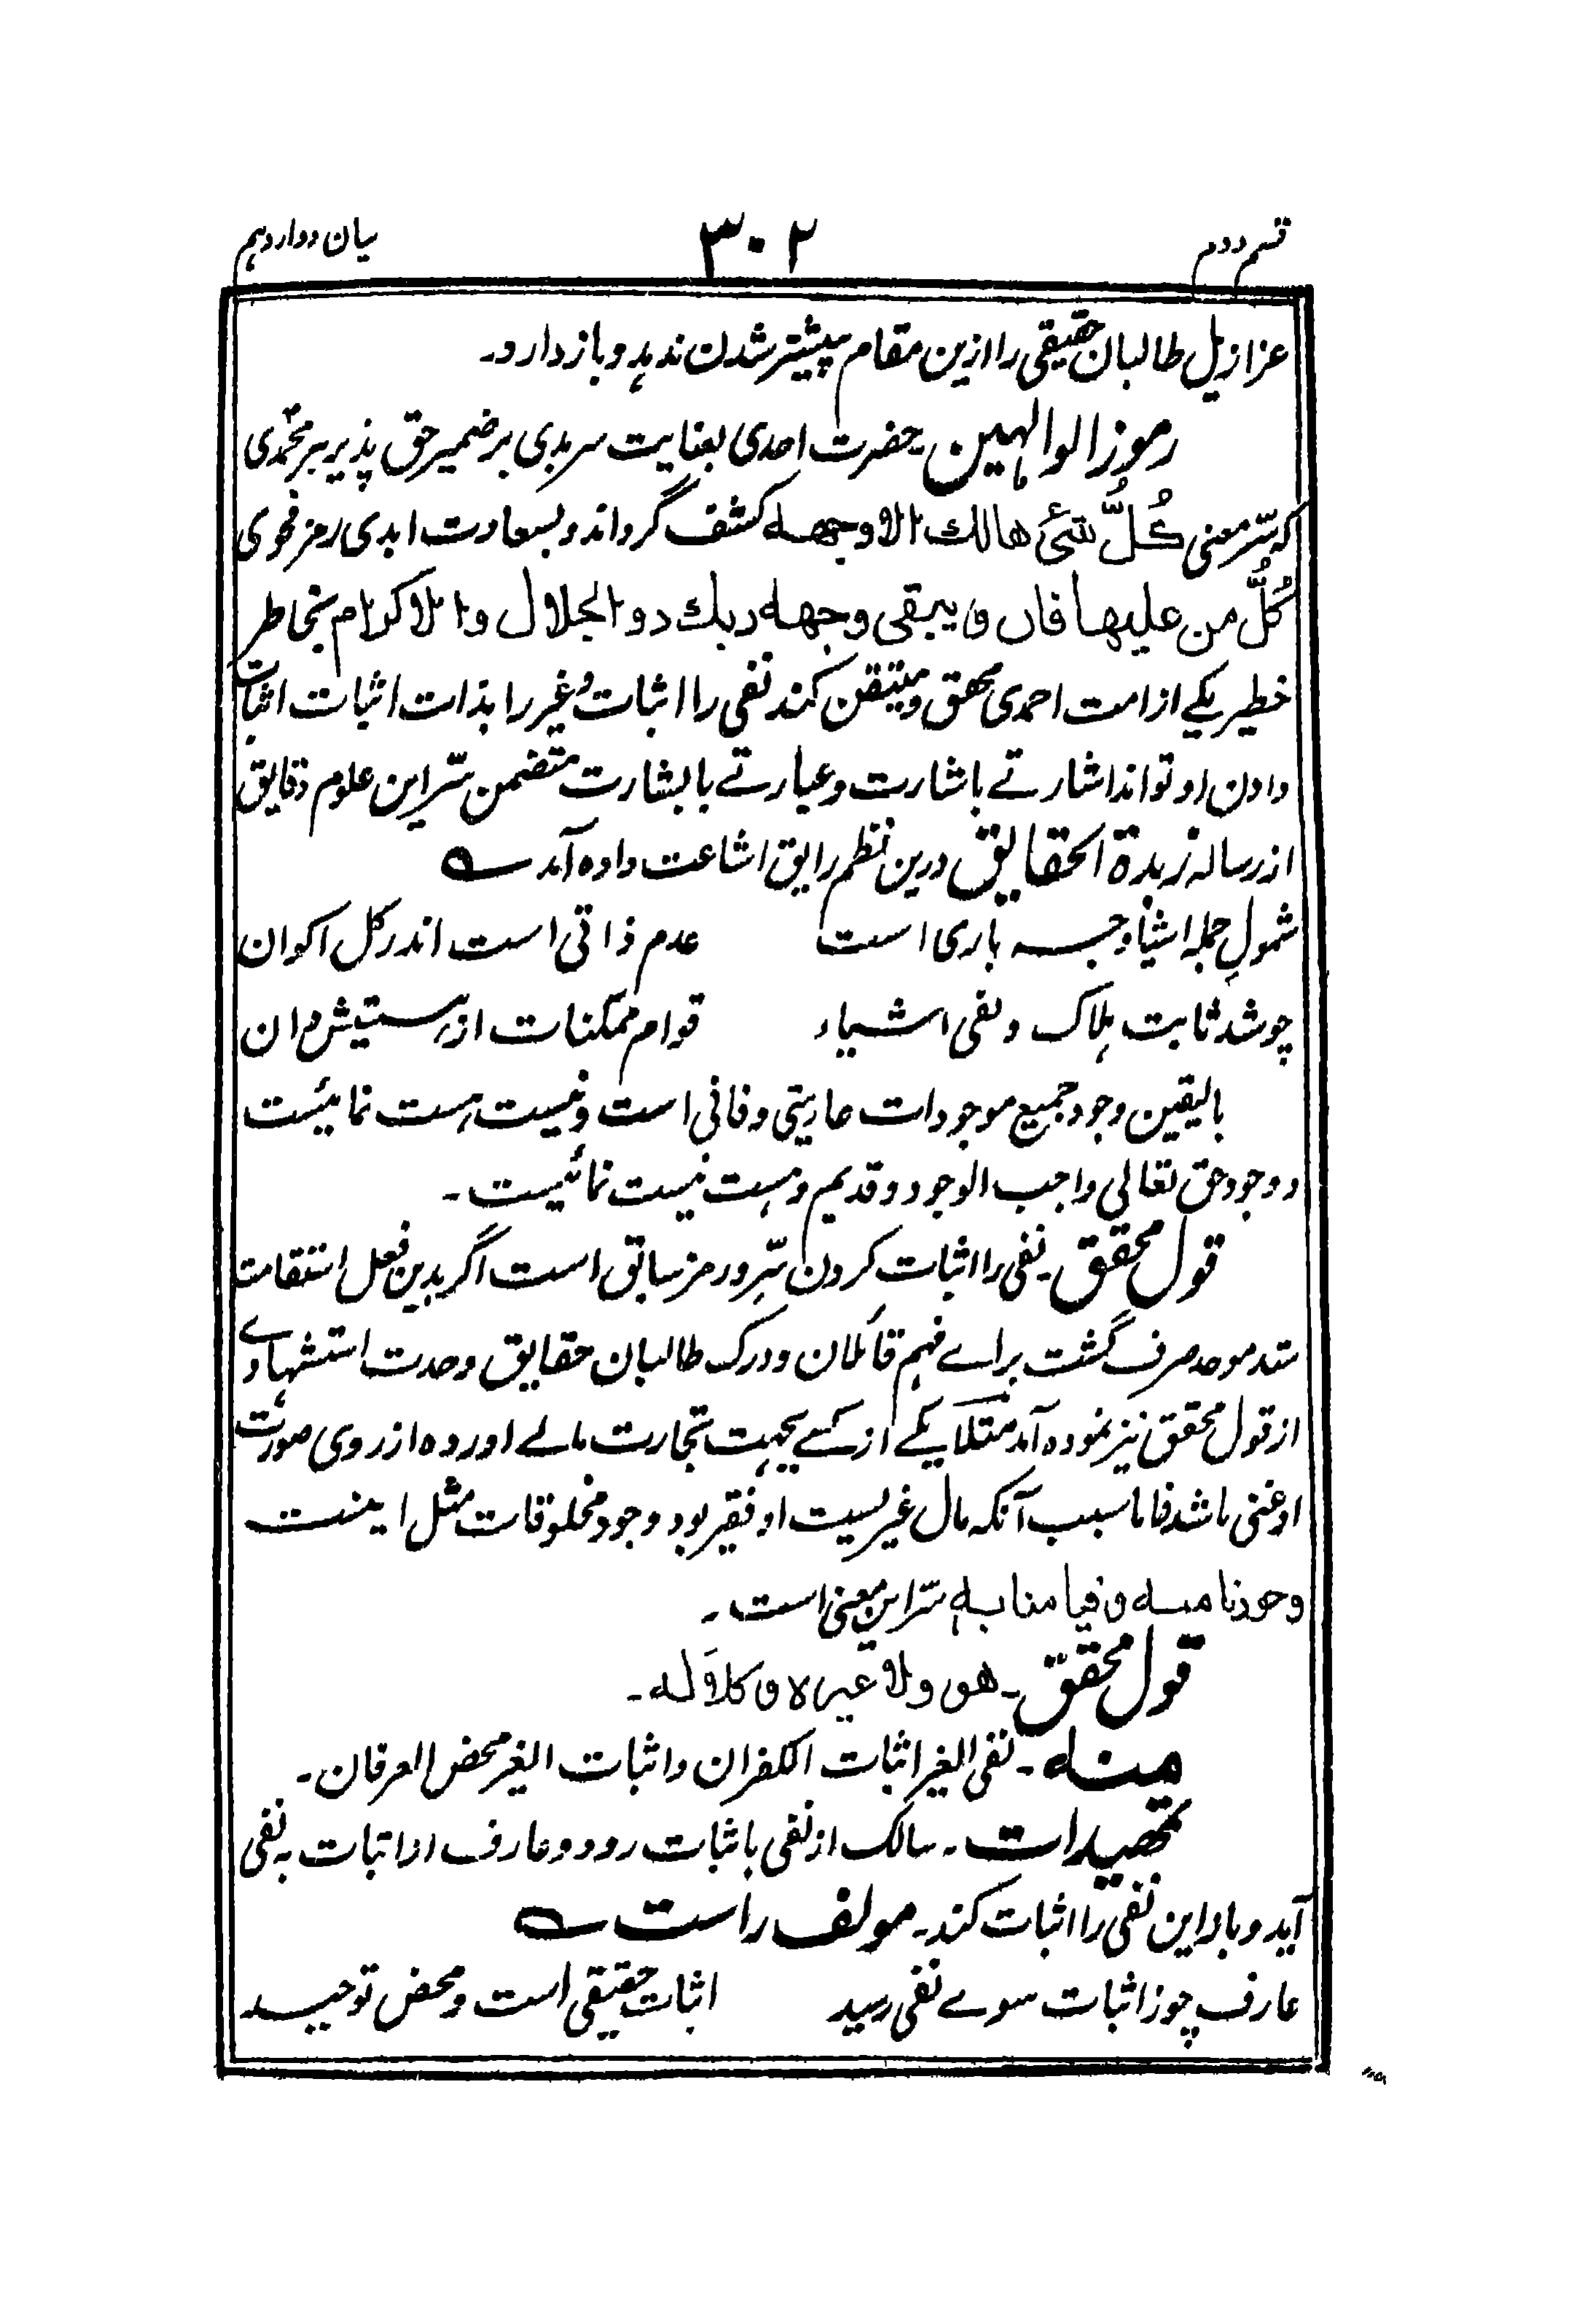 قسم دوم ۳۰۲ بیان دواردہم
عزازیل طالبان حقیقی را ازین مقام پیشتر شدن ندہد و باز دارد۔
رموز الوالہین۔ حضرت احدی بعنایت سرمدی بر ضمیر حق پذیر ہر محمدی
کہ سرّ معنی کُلُّ شئ ھالك الا وجهه کشف گرداند و بسعادت ابدی رمز فحوی
کُلُّ من علیها فان و یبقی وجهه ربك ذو الجلال و الاکرام بخاطر
خطیر یکے از امت احمدی محقق و متیقن کند نفی را اثبات و غیر را بذات اثبات اثبات
دادن او تواند اشارتے باشارت و عبارتے بابشارت متضمن سرّ این علوم دقایق
از رسالہ زبدة الحقایق درین نظم رایق اشاعت دادہ آمد ؎
شمولِ جملہ اشیا وجہ باری است عدم ذاتی است اندر کل اکوان
چو شد ثابت ہلاک و نفی اشیاء قوام ممکنات از ہستیش دان
بالیقین وجود جمیع موجودات عاریتی و فانی است و نیست ہست نمائیست
و وجود حق تعالی واجب الوجود و قدیم و ہست نیست نمائیست۔
قول محقق۔ نفی را اثبات کردن سرِّ و رمز سابق است اگر بدین فعل استقامت
ستد موحد صرف گشت براے فہم قائلان و درک طالبان حقایق وحدت استشہادے
از قول محقق نیز نمودہ آمد مثلاً یکے از کسے بجہت تجارت مالے اوردہ از روی صورت
او غنی باشد فاما سبب آنکہ مال غیریست او فقیر بود وجود مخلوقات مثل اینست
وجودنا منه و قیامنا به سرّ این معنی است۔
قول محقق۔ هو ولا غیره و کلاوله۔
منه۔ نفی الغیر اثبات الکفران و اثبات الغیر محض العرفان۔
تمہیدات۔ سالک از نفی باثبات رود و عارف از اثبات بہ نفی
آید و باز این نفی را اثبات کند۔ مولف راست ؎
عارف چو ز اثبات سوے نفی رسید اثبات حقیقی است و محض توحید